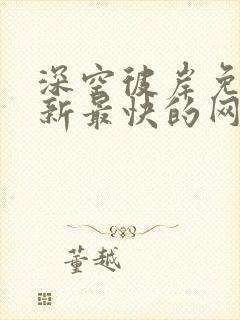 深空彼岸免
新最快的网
董越